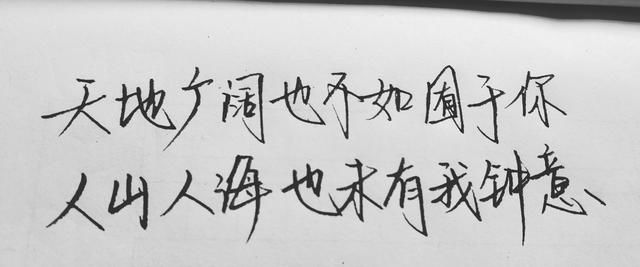 天地广阔也不如囿于你
人山人海也未有我钟意